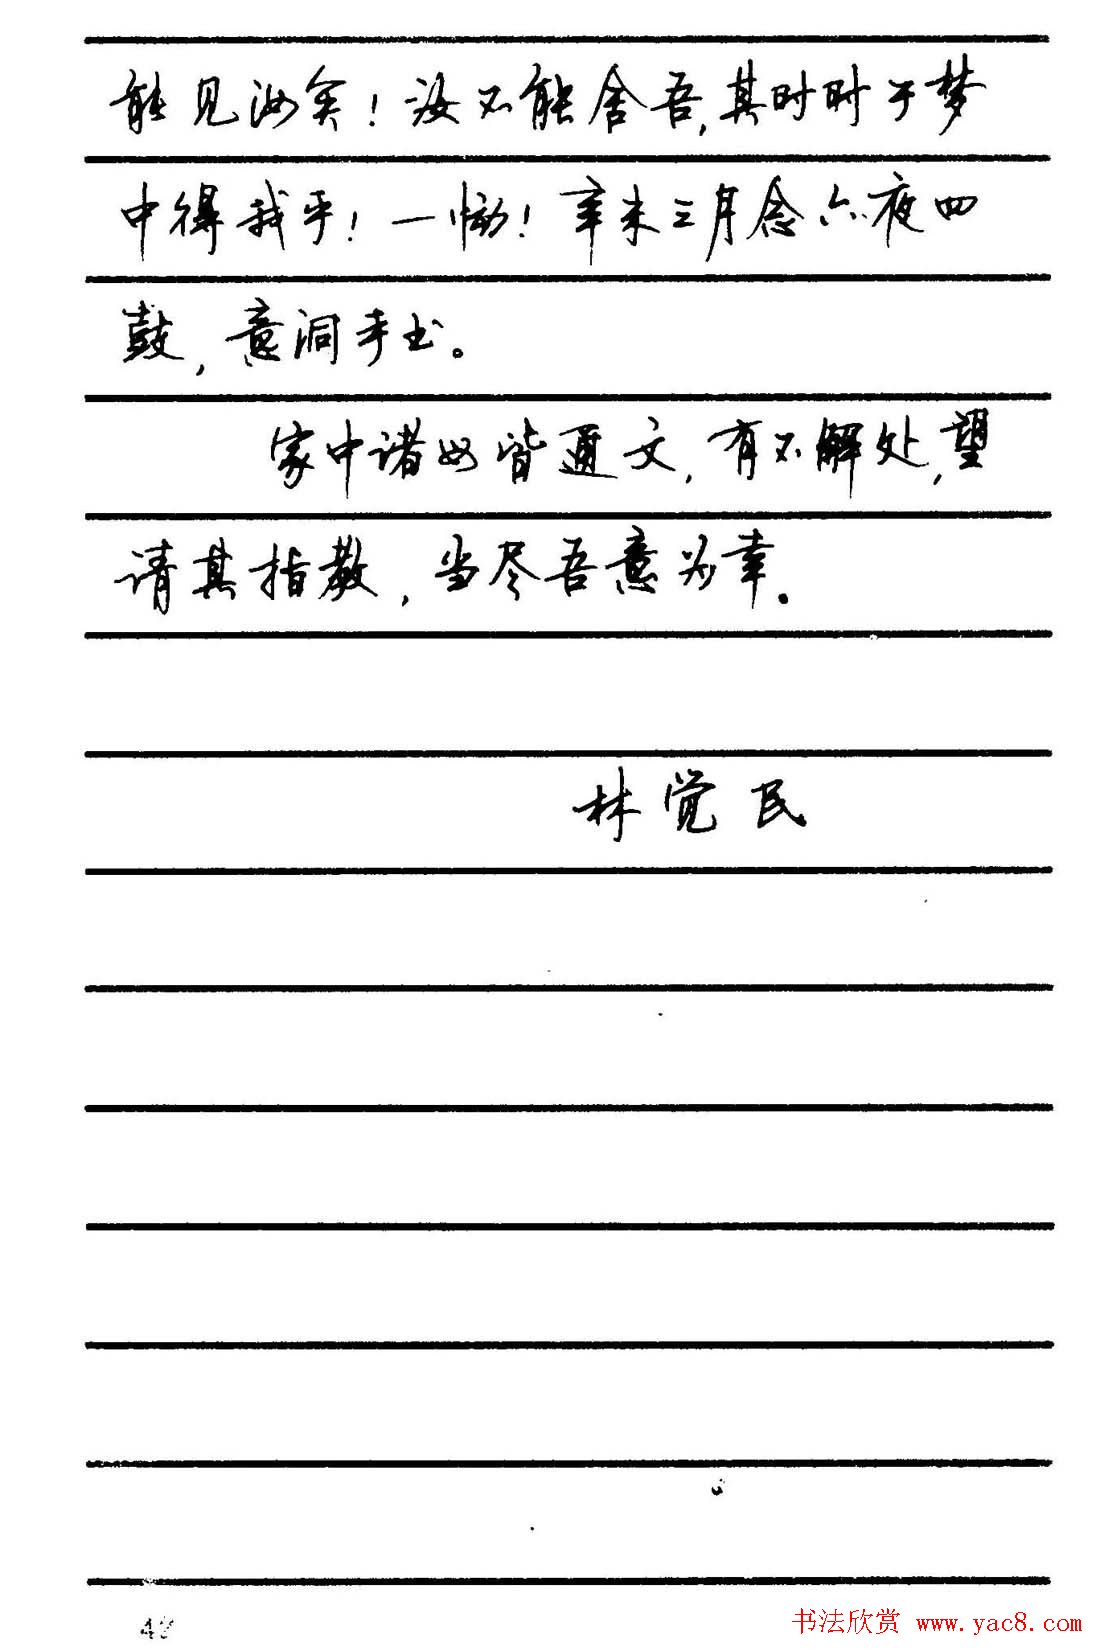 能见汝矣！汝不能舍吾，其时时于梦
中得我乎！一恸！辛未三月念六夜四
鼓，意洞手书。
家中诸母皆通文，有不解处，望
请其指教，当尽吾意为幸。
林觉民
书法欣赏 www.yac8.com